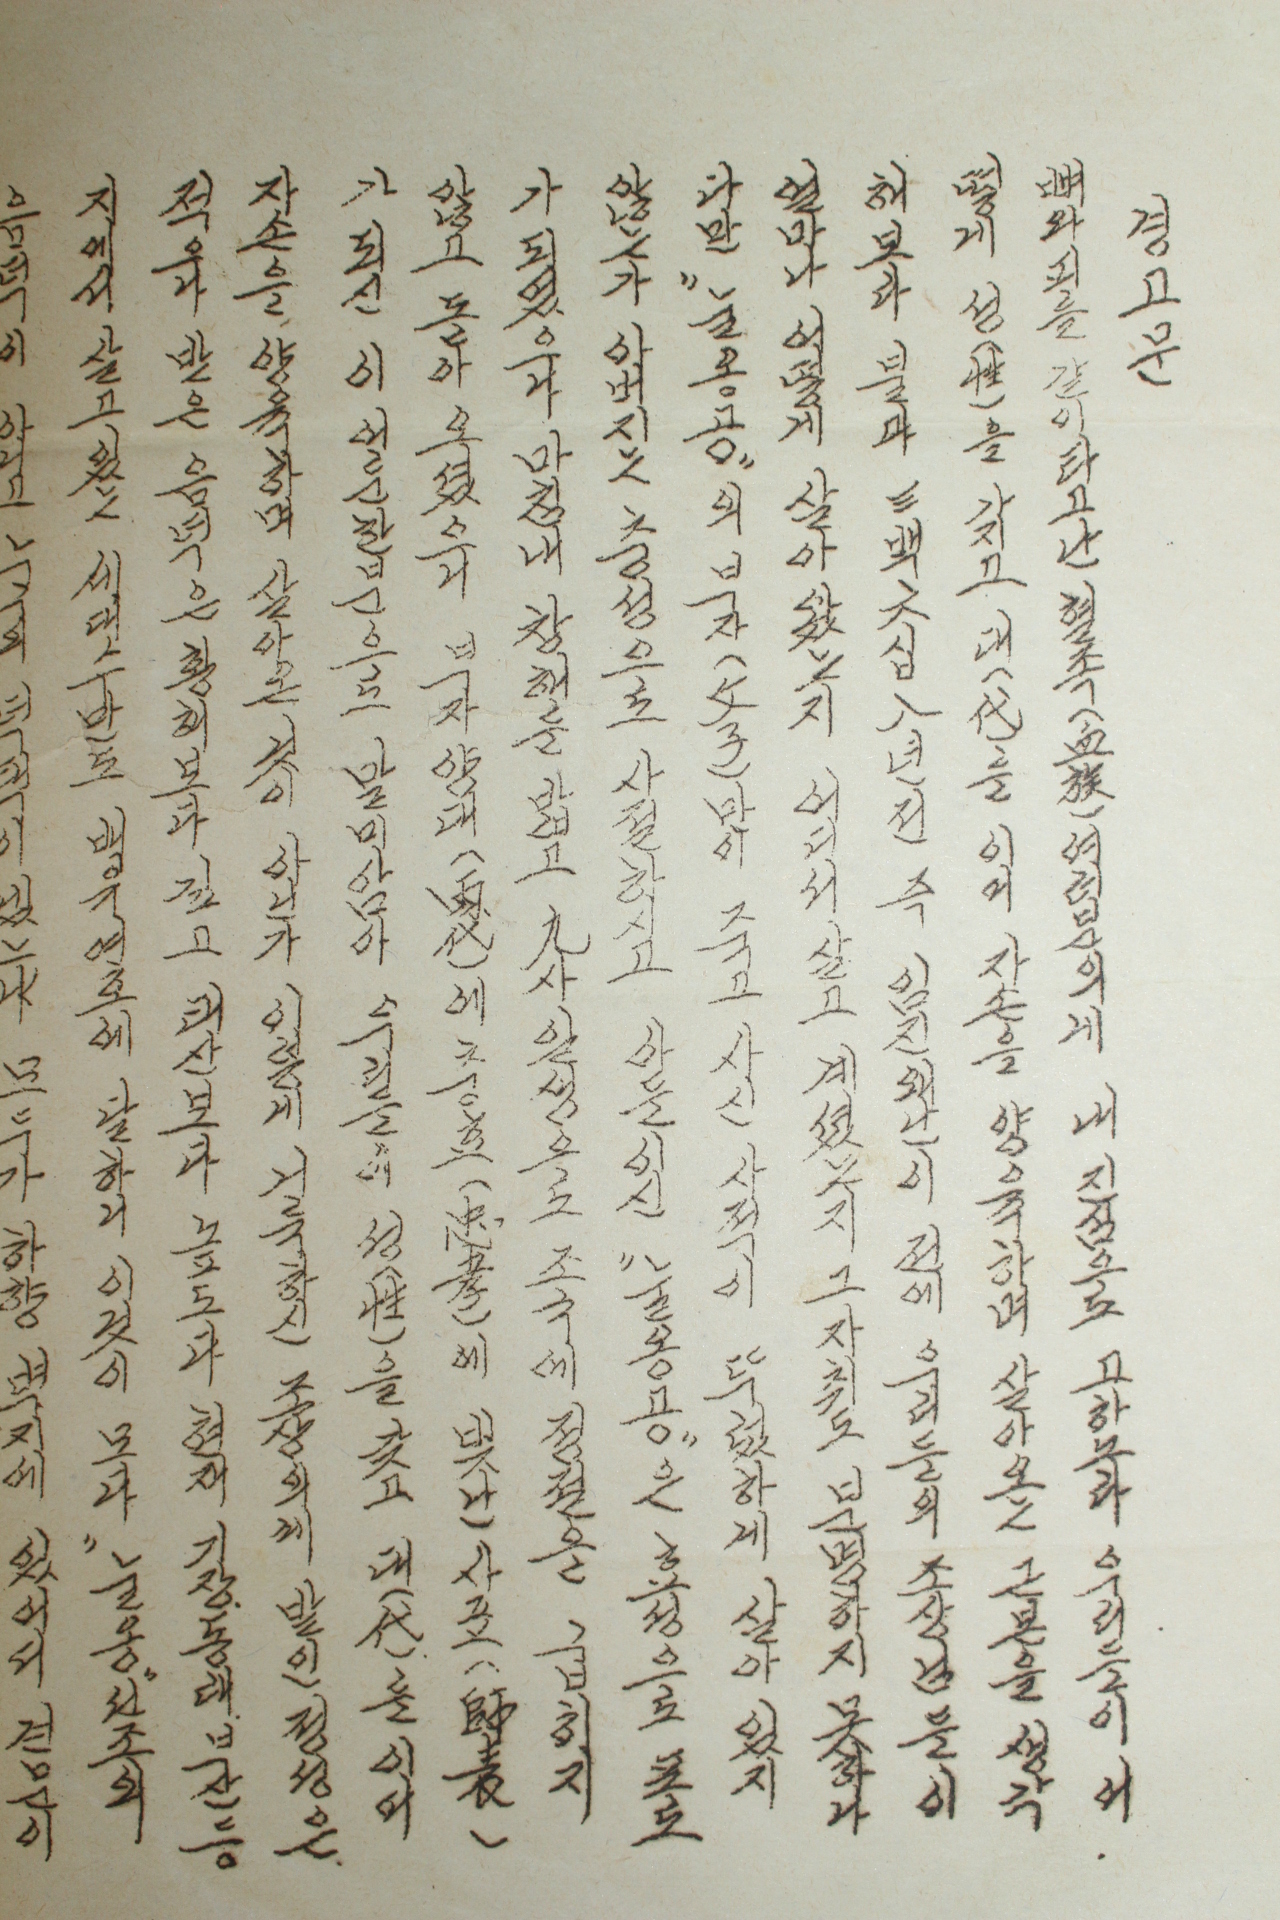 경고문
뼈와 피를 같이 타고난 혈족(血族) 여러분의게 내 진심으로 고하노라 우리들이 어
떻게 성(姓)을 가지고 대(代)를 이어 자손을 양육하며 살아온 근본을 생각
해보라 불과 三백六십八년전 즉 임진왜란이 전에 우리들의 조상님들이
얼마나 어떻게 살아 왔는지 어디서 살고 계셨는지 그 자취도 분명하지 못하라
다만 "눌옹공"의 부자(父子)만이 죽고 사신 사적이 뚜렸하게 살아 있지
않는가 아버지는 충성으로 사절하시고 아들이신 "눌옹공"은 효성으로 포로
가 되였으나 마침내 창해를 밟고 九사일생으로 조국에 정절을 굽히지
않고 돌아 오셨으니 부자 양대(兩代)에 충효(忠孝)에 빛난 사표(師表)
가 되신 이 어른한분으로 말미암아 우리들에 성(姓)을 갖고 대(代)를 이어
자손을 양육하며 살아온 것이 아닌가 이렇게 거룩하신 조상의게 받인 정성은
적으나 받은 음덕은 황해보다 깊고 태산보다 높도다 현재 기장 동래 부산 등
지에서 살고 있는 세대수만도 백구여호에 달하니 이것이 모다 "눌옹"선조의
음덕이 아니고 누구의 덕택이 겠느냐 모두가 하향 벽지에 있어서 견문이